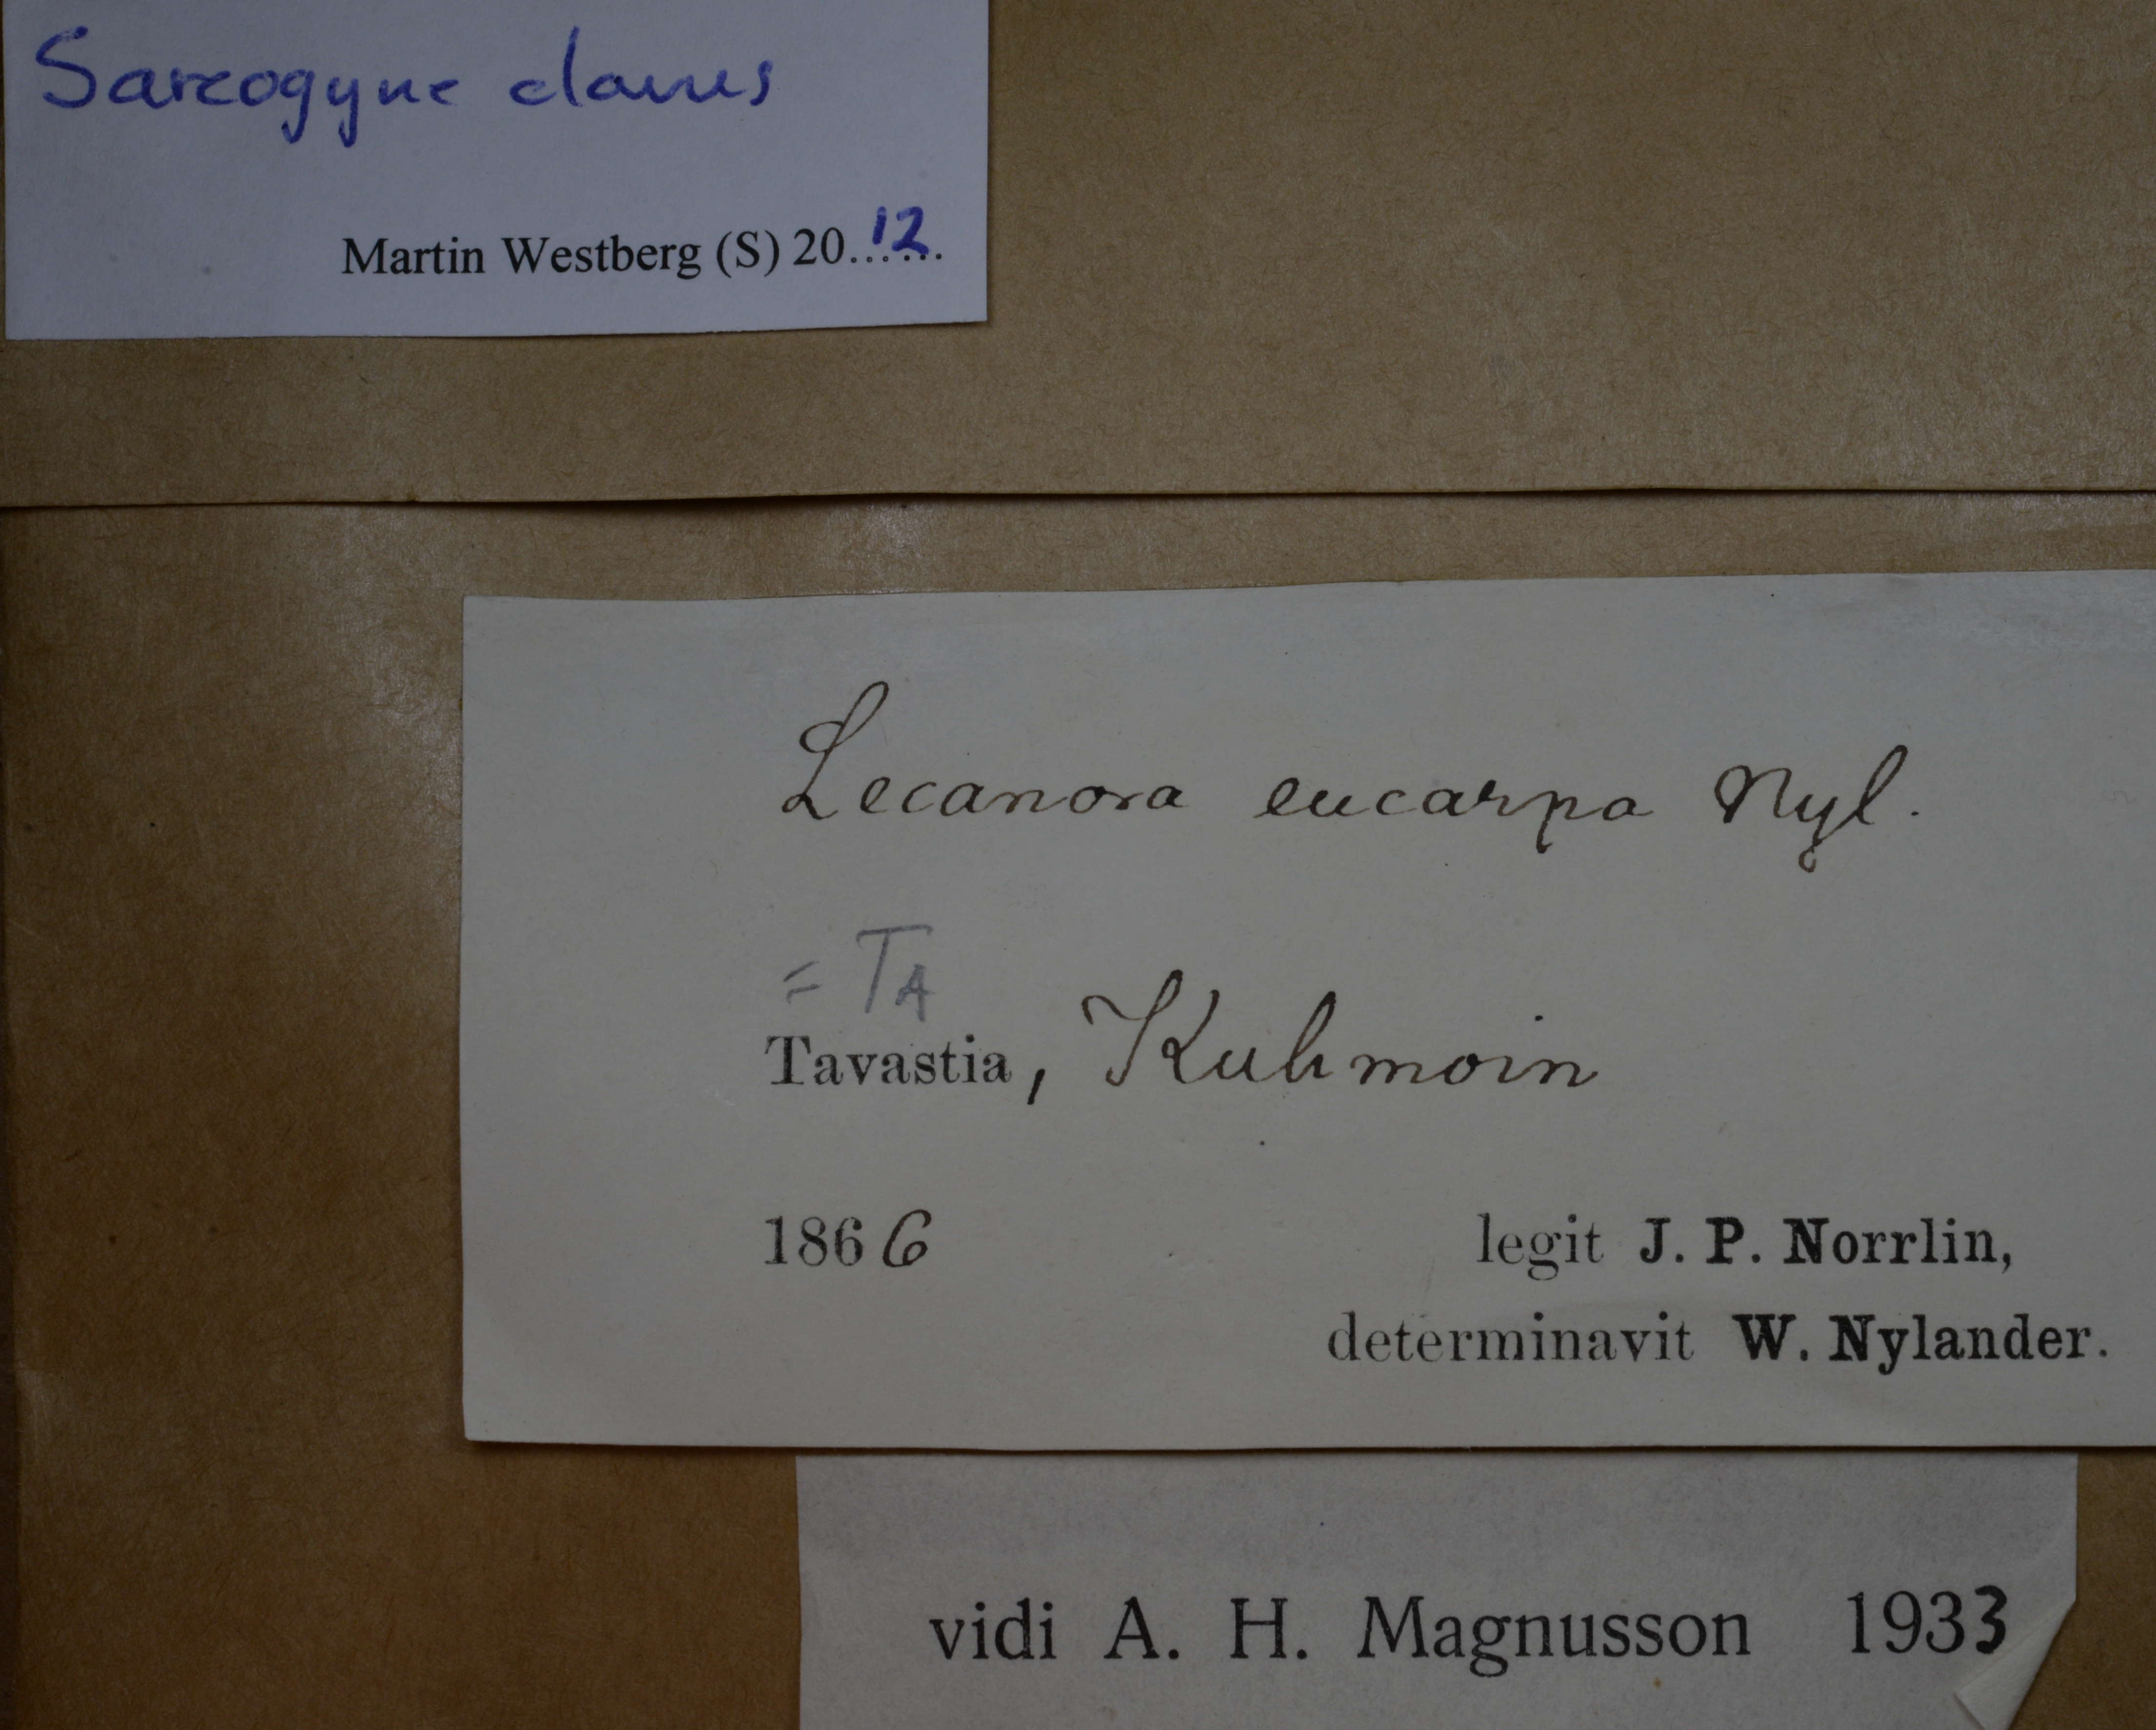 Sarcogyne clavus
Martin Westberg (S) 20...12.
Lecanora eucarpa Nyl.
= TA
Tavastia, Kuhmoin
1866 legit J. P. Norrlin,
determinavit W. Nylander.
vidi A. H. Magnusson 1933